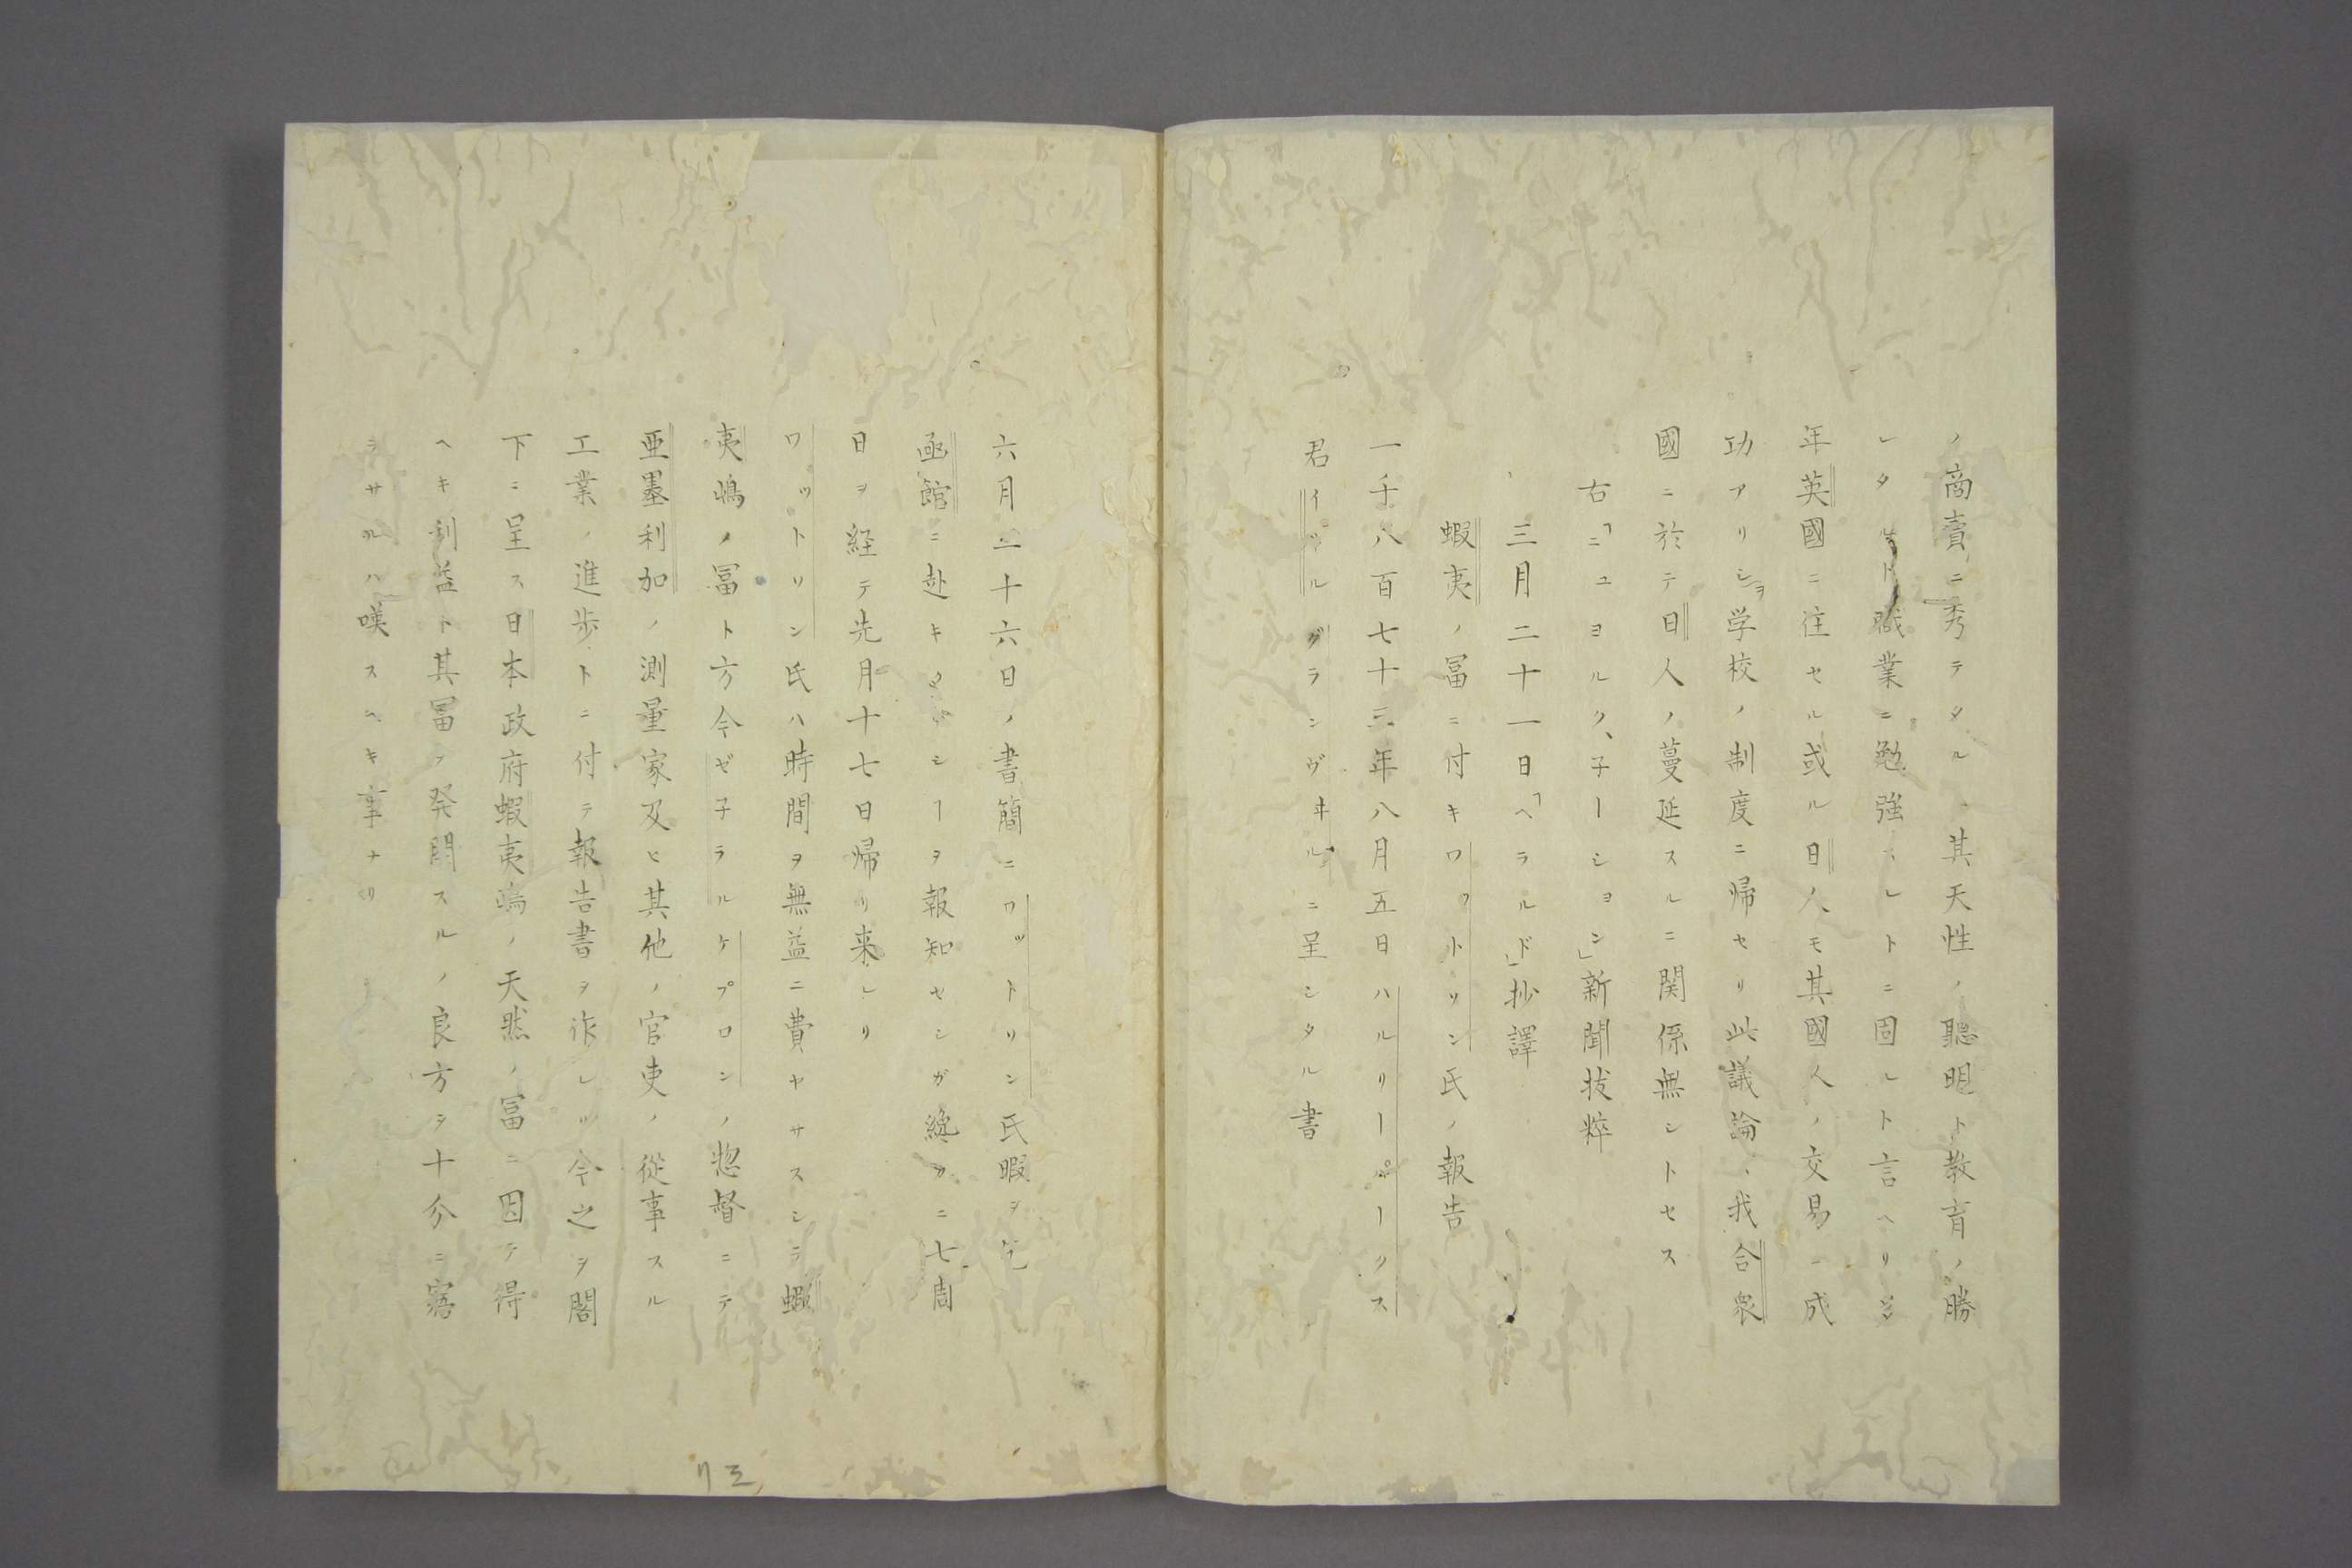 ノ商賣ニ秀テタル、其天性ノ聰明ト教育ノ勝
レタルト職業ニ勉強ナレトニ因レト言ヘリ
年英國ニ往セル或ル日人モ其國人ノ交易ニ成
功アリシヲ学校ノ制度ニ帰セリ此議論、我合衆
國ニ於テ日人ノ蔓延スルニ関係無シトセス
右「ニユヨルク、子ーシヨン」新聞抜粹
三月二十一日「ヘラルド」抄譯
蝦夷ノ冨ニ付キワットリン氏ノ報告
一千八百七十三年八月五日ハルリーパークス
君イールグランヴヰルニ呈シタル書
六月二十六日ノ書簡ニワットリン氏暇ヲ乞
函館ニ赴キヲ報知セシガ纔カニ七周
日ヲ経テ先月十七日帰リ来レリ
ワットリン氏ハ時間ヲ無益ニ費ヤサスシテ蝦
夷嶋ノ冨ト方今ゼ子ラルケプロンノ惣督ニテ
亜墨利加ノ測量家及ヒ其他ノ官吏ノ從事スル
工業ノ進歩トニ付テ報告書ヲ作レリ今之ヲ閣
下ニ呈ス日本政府蝦夷嶋ノ天然ノ冨ニ因テ得
ヘキ利益ト其冨ヲ発開スルノ良方ヲ十分ニ
ラサルハ嘆スヘキ事ナリ